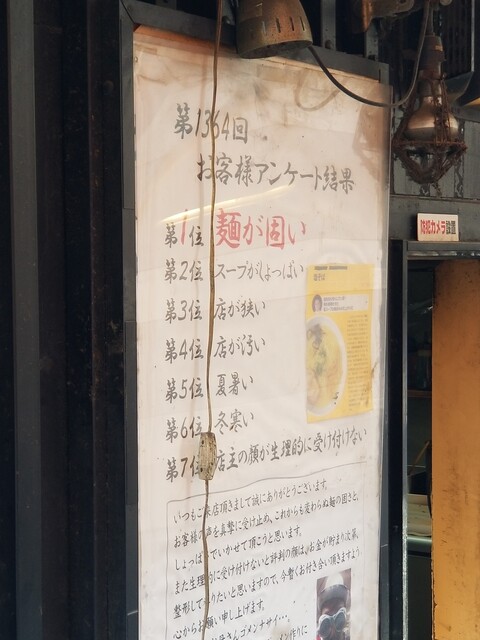 第1364回
お客様アンケート結果
第1位 麺が固い
第2位 スープがしょっぱい
第3位 店が狭い
第4位 店が汚い
第5位 夏暑い
第6位 冬寒い
第7位 店主の顔が生理的に受け付けない
いつもご来店頂きまして誠にありがとうございます。
お客様の声を真摯に受け止め、これからも変わらぬ麺の固さと、
しょっぱさでいかせて頂こうと思います。
また生理的に受け付けないと評判の顔は、お金が貯まり次第、
整形して参りたいと思いますので、今暫くお付き合い頂きますよう
心からお願い申し上げます。
さんゴメンナサイ…
メン作りに
防犯カメラ設置